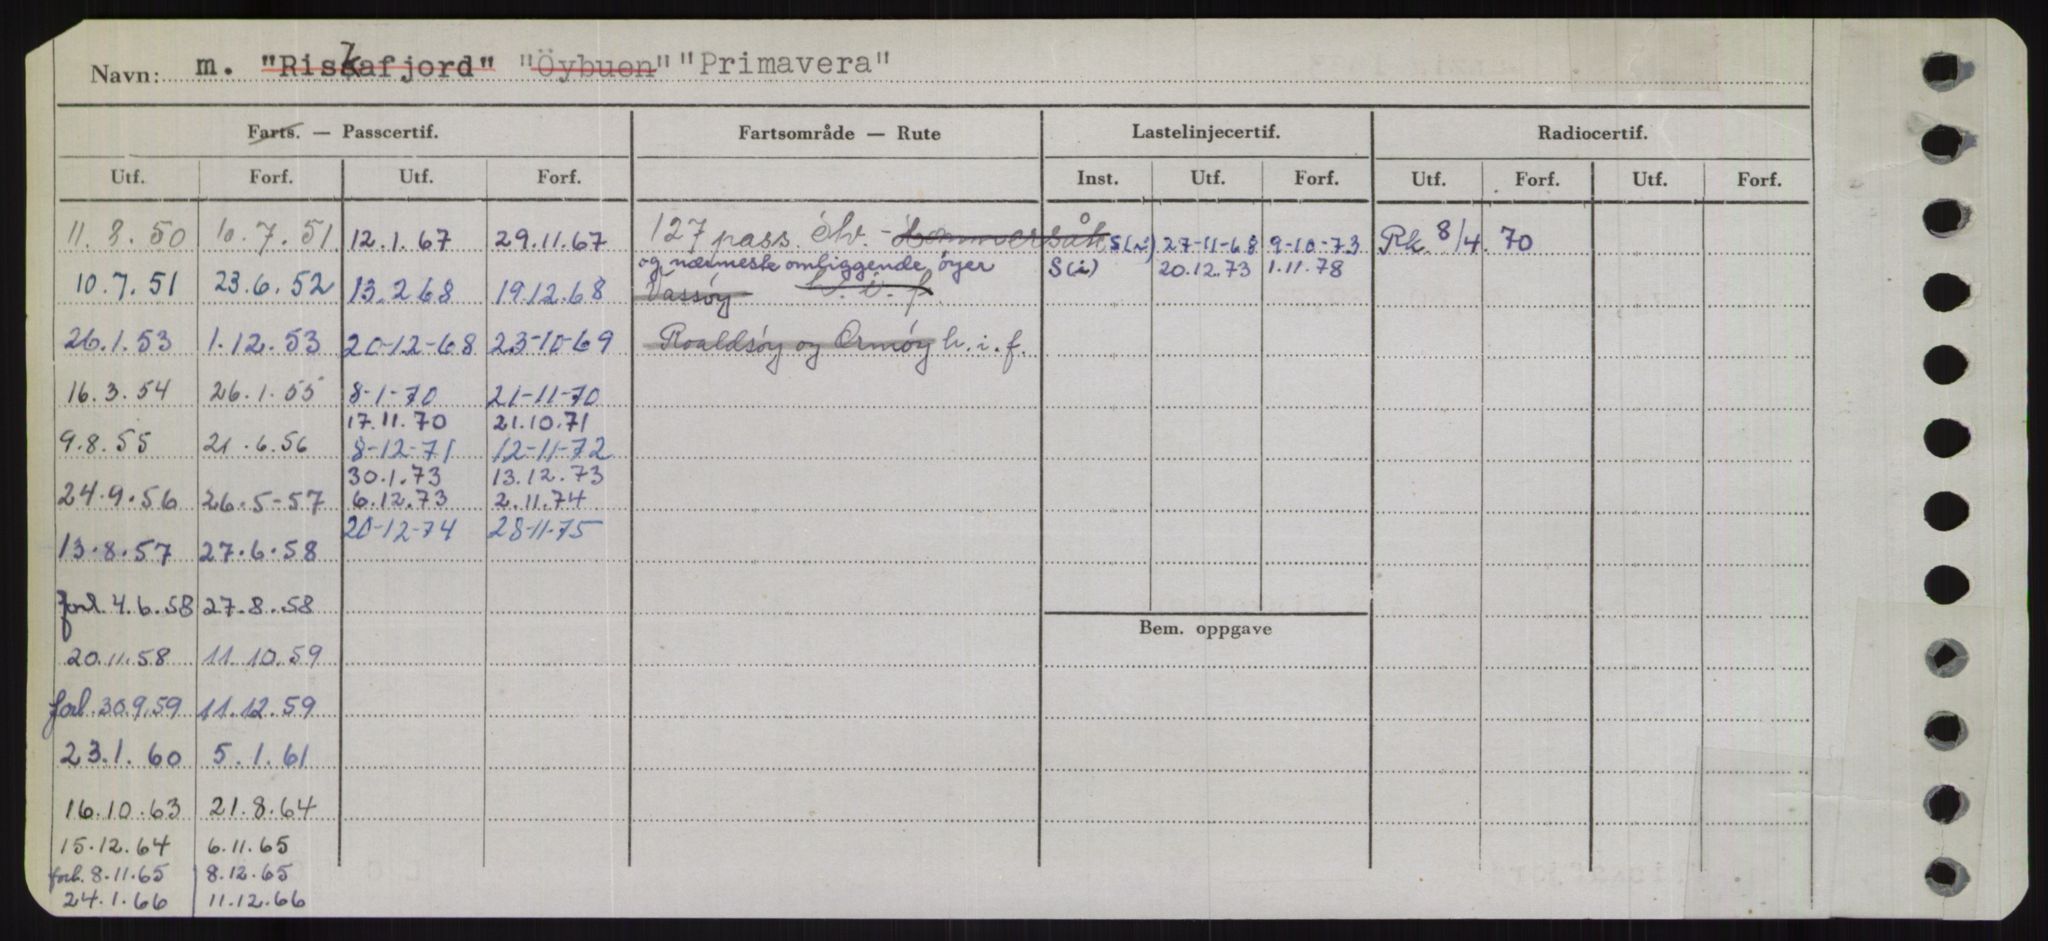 Navn: m. "Riskafjord" "Öybuen" "Primavera"
Farts. — Passcertif. Fartsområde — Rute Lastelinjecertif. Radiocertif.
Utf. Forf. Utf. Forf. Inst. Utf. Forf. Utf. Forf. Utf. Forf.
11. 8. 50 10. 7. 51 12. 1. 67 29.11.67 127 pass. - Hommersåk S(i) 27-11-68 9-10-73 Rk. 8/4. 70
og nærmeste omliggende øyer S(i) 20.12.73 1.11.78
10.7.51 23.6.52 13.2.68 19.12.68 Vassøy h. i. f.
26.1.53 1.12.53 20-12-68 23-10-69 Roaldsøy og Ormøy h. i. f.
16.3.54 26.1.55 8-1-70 21-11-70
17.11.70 21.10.71
9.8.55 21.6.56 8-12-71 12-11-72
30.1.73 13.12.73
24.9.56 26.5-57 6.12.73 2.11.74
20-12-74 28-11-75
13.8.57 27.6.58
forl. 4.6.58 27.8.58
Bem. oppgave
20.11.58 11.10.59
forl. 30.9.59 11.12.59
23.1.60 5.1.61
16.10.63 21.8.64
15.12.64 6.11.65
forl. 8.11.65 8.12.65
24.1.66 11.12.66